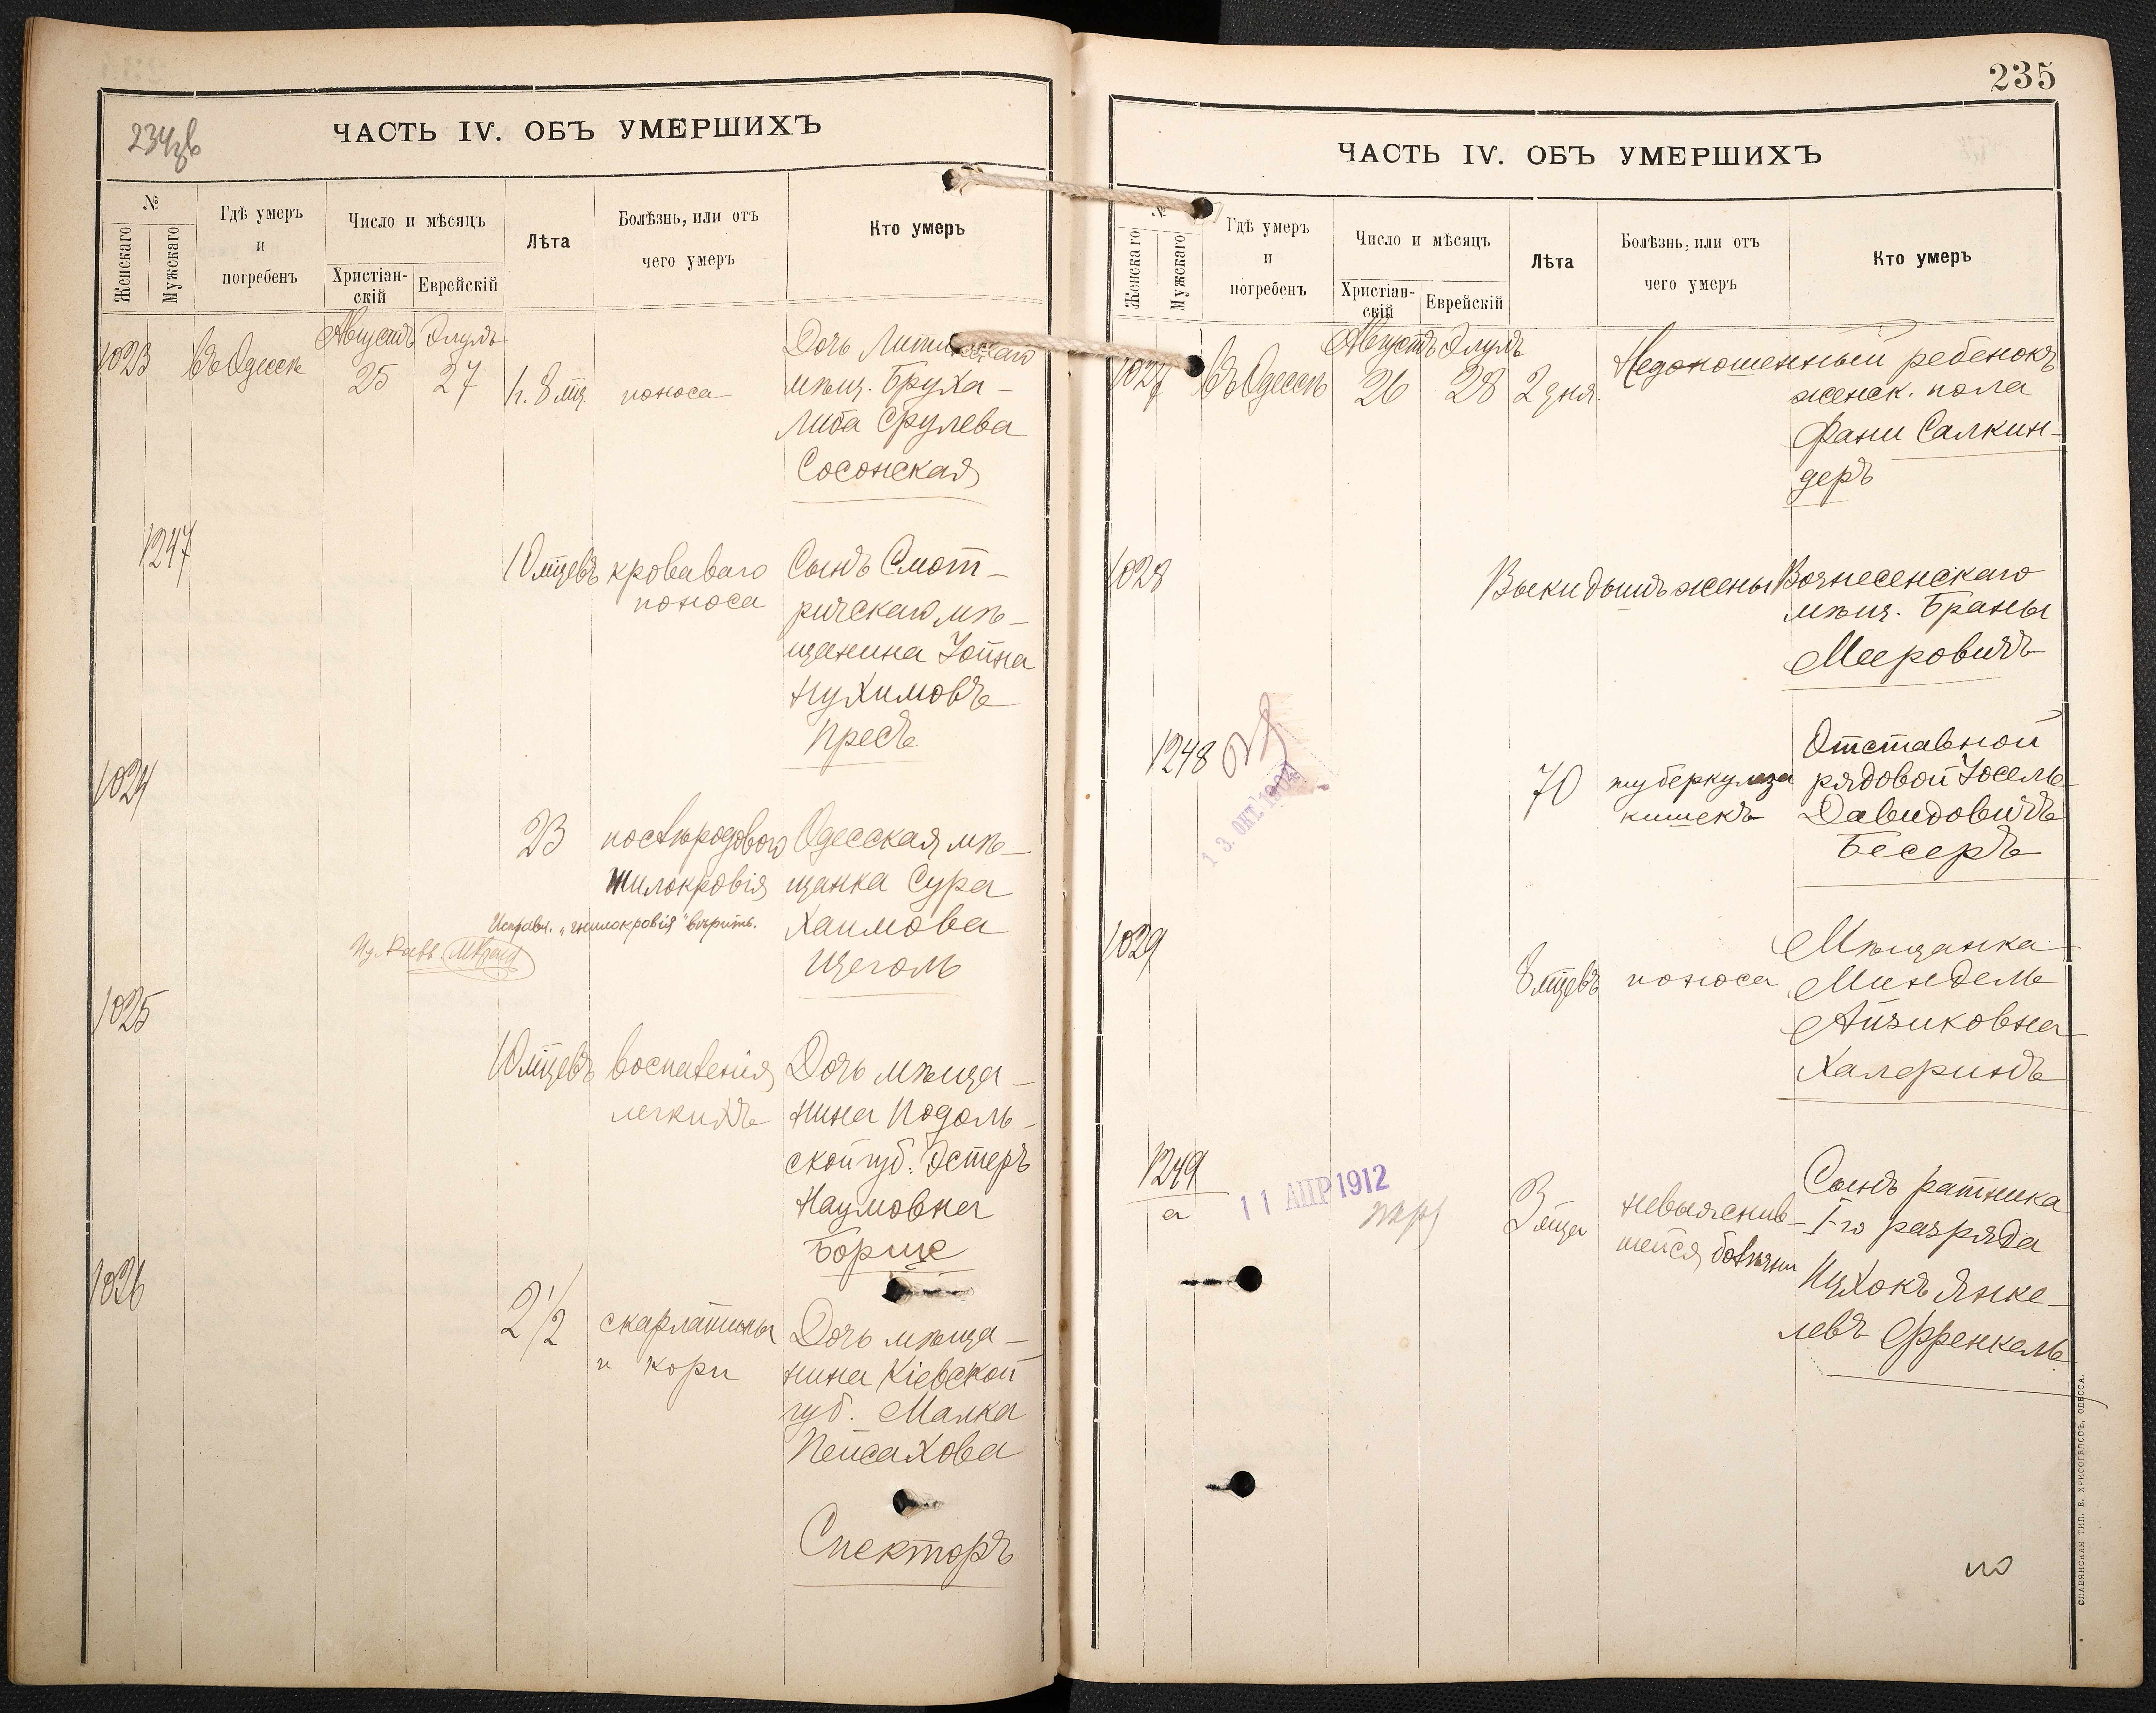 234 об
ЧАСТЬ IV. ОБЪ УМЕРШИХЪ
№
Женскаго
Мужскаго
Гдѣ умеръ
и
погребенъ
Число и мѣсяцъ
Христіан-
скій
Еврейскій
Лѣта
Болѣзнь, или отъ
чего умеръ
Кто умеръ
1023
Въ Одессѣ
Августъ
25
Элулъ
27
1 г. 8 мц.
поноса
Дочь Литинскаго
мѣщ. Бруха-
Либа Срулева
Сосонская
1247
10 мцевъ
кроваваго
поноса
Сынъ Смот-
ричскаго мѣ-
щанина Іойна
Нухимовъ
Пресъ
1024
23
послѣродового
гнилокровія
Исправл. „гнилокровія" вѣрить.
Одесская мѣ-
щанка Сура
Хаимова
Щеголь
1025
10 мцевъ
воспаленія
легкихъ
Дочь мѣща-
нина Подоль-
ской губ. Эстеръ
Наумовна
Борще
1026
2 1/2
скарлатины
и кори
Дочь мѣща-
нина Кіевской
губ. Малка
Пейсахова
Спекторъ
235
ЧАСТЬ IV. ОБЪ УМЕРШИХЪ
№
Женскаго
Мужскаго
Гдѣ умеръ
и
погребенъ
Число и мѣсяцъ
Христіан-
скій
Еврейскій
Лѣта
Болѣзнь, или отъ
чего умеръ
Кто умеръ
1027
Въ Одессѣ
Августъ
26
Элулъ
28
2 дня.
Недоношенный ребенокъ
женск. пола
Фани Салкин-
деръ
1028
Выкидышъ жены Вознесенскаго
мѣщ. Браны
Мееровичъ
1248
13. ОКТ 1902
70
туберкулеза
кишекъ
Отставной
рядовой Іосель
Давидовичъ
Бесеръ
1029
8 мцевъ
поноса
Мѣщанка
Миндель
Айзиковна
Халфинъ
1249
а
11 АПР 1912
3 мца
невыяснив-
шейся болѣзни
Сынъ ратника
I-го разряда
Ицхокъ Янке-
левъ Френкель.
СЛАВЯНСКАЯ ТИП. Е. ХРИСОГЕЛОСЪ, ОДЕССА.